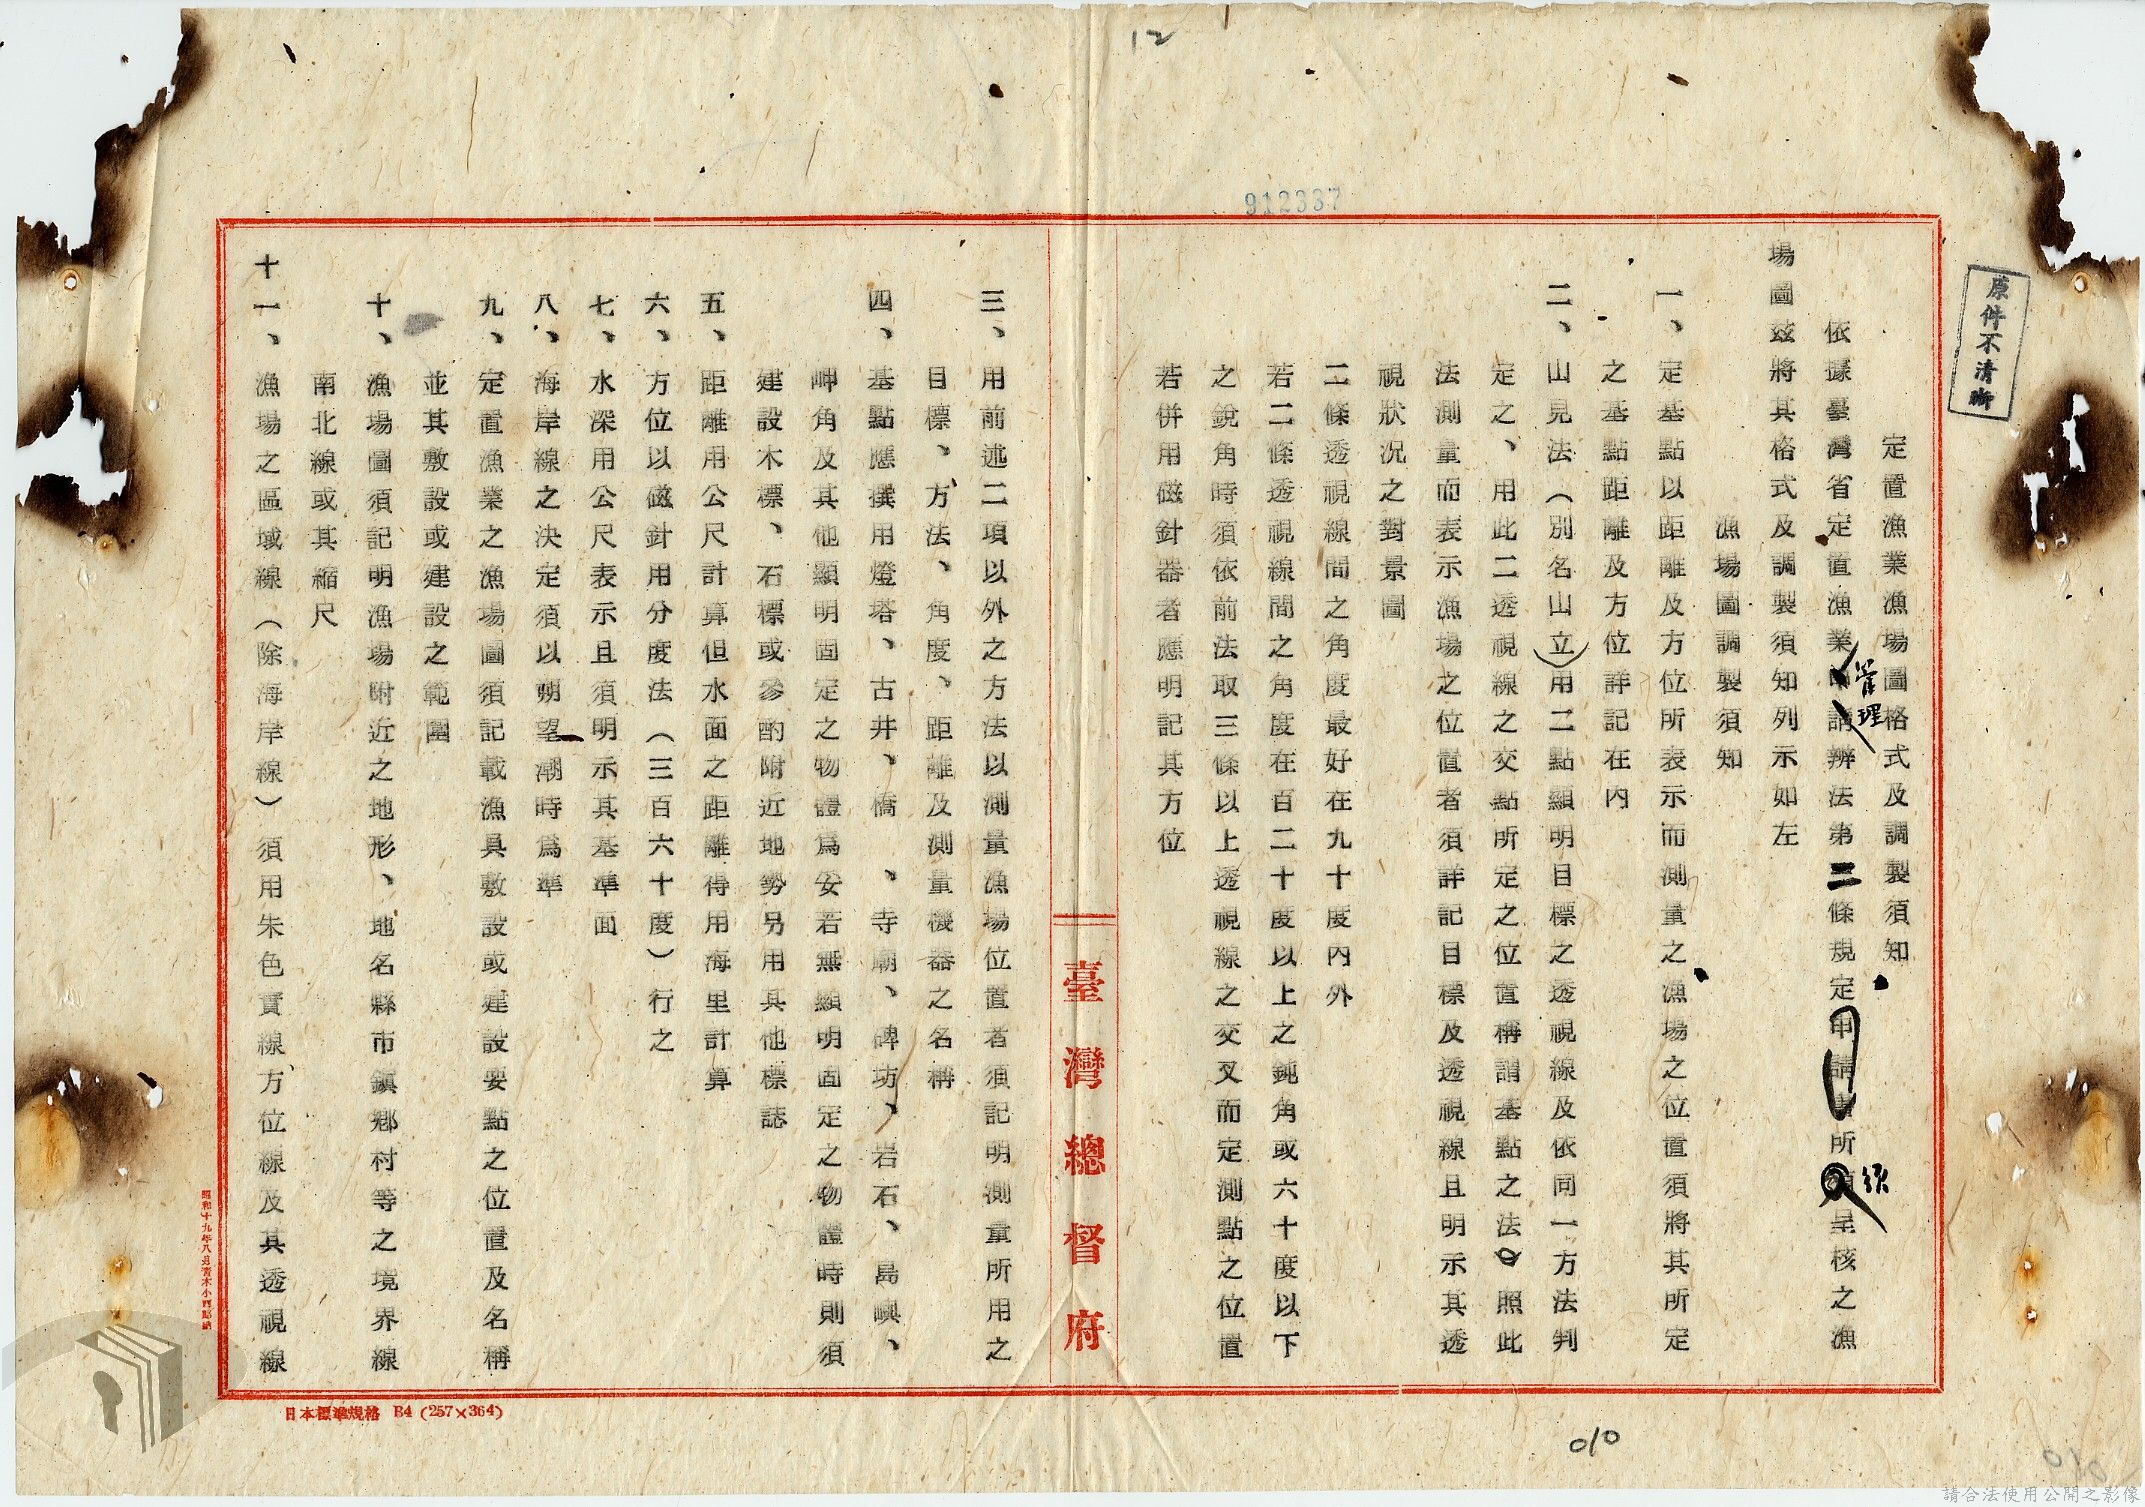 12
912337
原件不清晰
定置漁業漁場圖格式及調製須知
依據臺灣省定置漁業管理辦法第三條規定所須呈核之漁
場圖茲將其格式及調製須知列示如左
漁場圖調製須知
一、定基點以距離及方位所表示而測量之漁場之位置須將其所定
之基點距離及方位詳記在內
二、山見法（別名山立）用二點顯明目標之透視線及依同一方法判
定之、用此二透視線之交點所定之位置稱謂基點之法。照此
法測量而表示漁場之位置者須詳記目標及透視線且明示其透
視狀況之對景圖
二條透視線間之角度最好在九十度內外
若二條透視線間之角度在百二十度以上之鈍角或六十度以下
之銳角時須依前法取三條以上透視線之交叉而定測點之位置
若併用磁針器者應明記其方位
臺灣總督府
三、用前述二項以外之方法以測量漁場位置者須記明測量所用之
目標、方法、角度、距離及測量機器之名稱
四、基點應撰用燈塔、古井、橋、寺廟、碑坊、岩石、島嶼、
岬角及其他顯明固定之物體爲安若無顯明固定之物體時則須
建設木標、石標或參酌附近地勢另用其他標誌
五、距離用公尺計算但水面之距離得用海里計算
六、方位以磁針用分度法（三百六十度）行之
七、水深用公尺表示且須明示其基準面
八、海岸線之決定須以朔望潮時爲準
九、定置漁業之漁場圖須記載漁具敷設或建設要點之位置及名稱
並其敷設或建設之範圍
十、漁場圖須記明漁場附近之地形、地名縣市鎮鄉村等之境界線
南北線或其縮尺
十一、漁場之區域線（除海岸線）須用朱色實線方位線及其透視線
日本標準規格 B4 (257×364)
010
010
請合法使用公開之影像